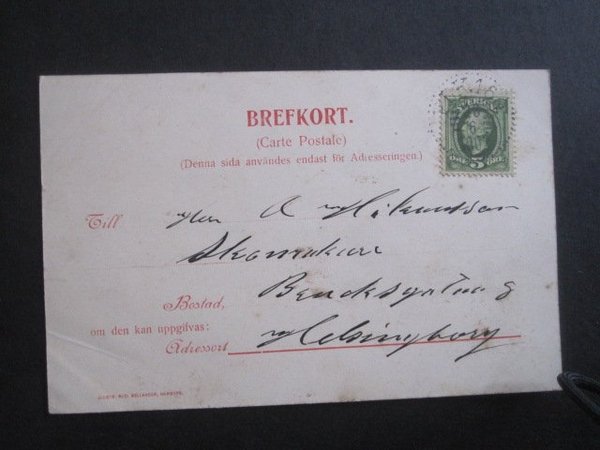 BREFKORT.
(Carte Postale)
(Denna sida användes endast för Adresseringen.)
SVERIGE
ÖRE 5 ÖRE
Till Herr A Håkansson
Skomakare
Bostad,
om den kan uppgifvas:
Adressort Helsingborg